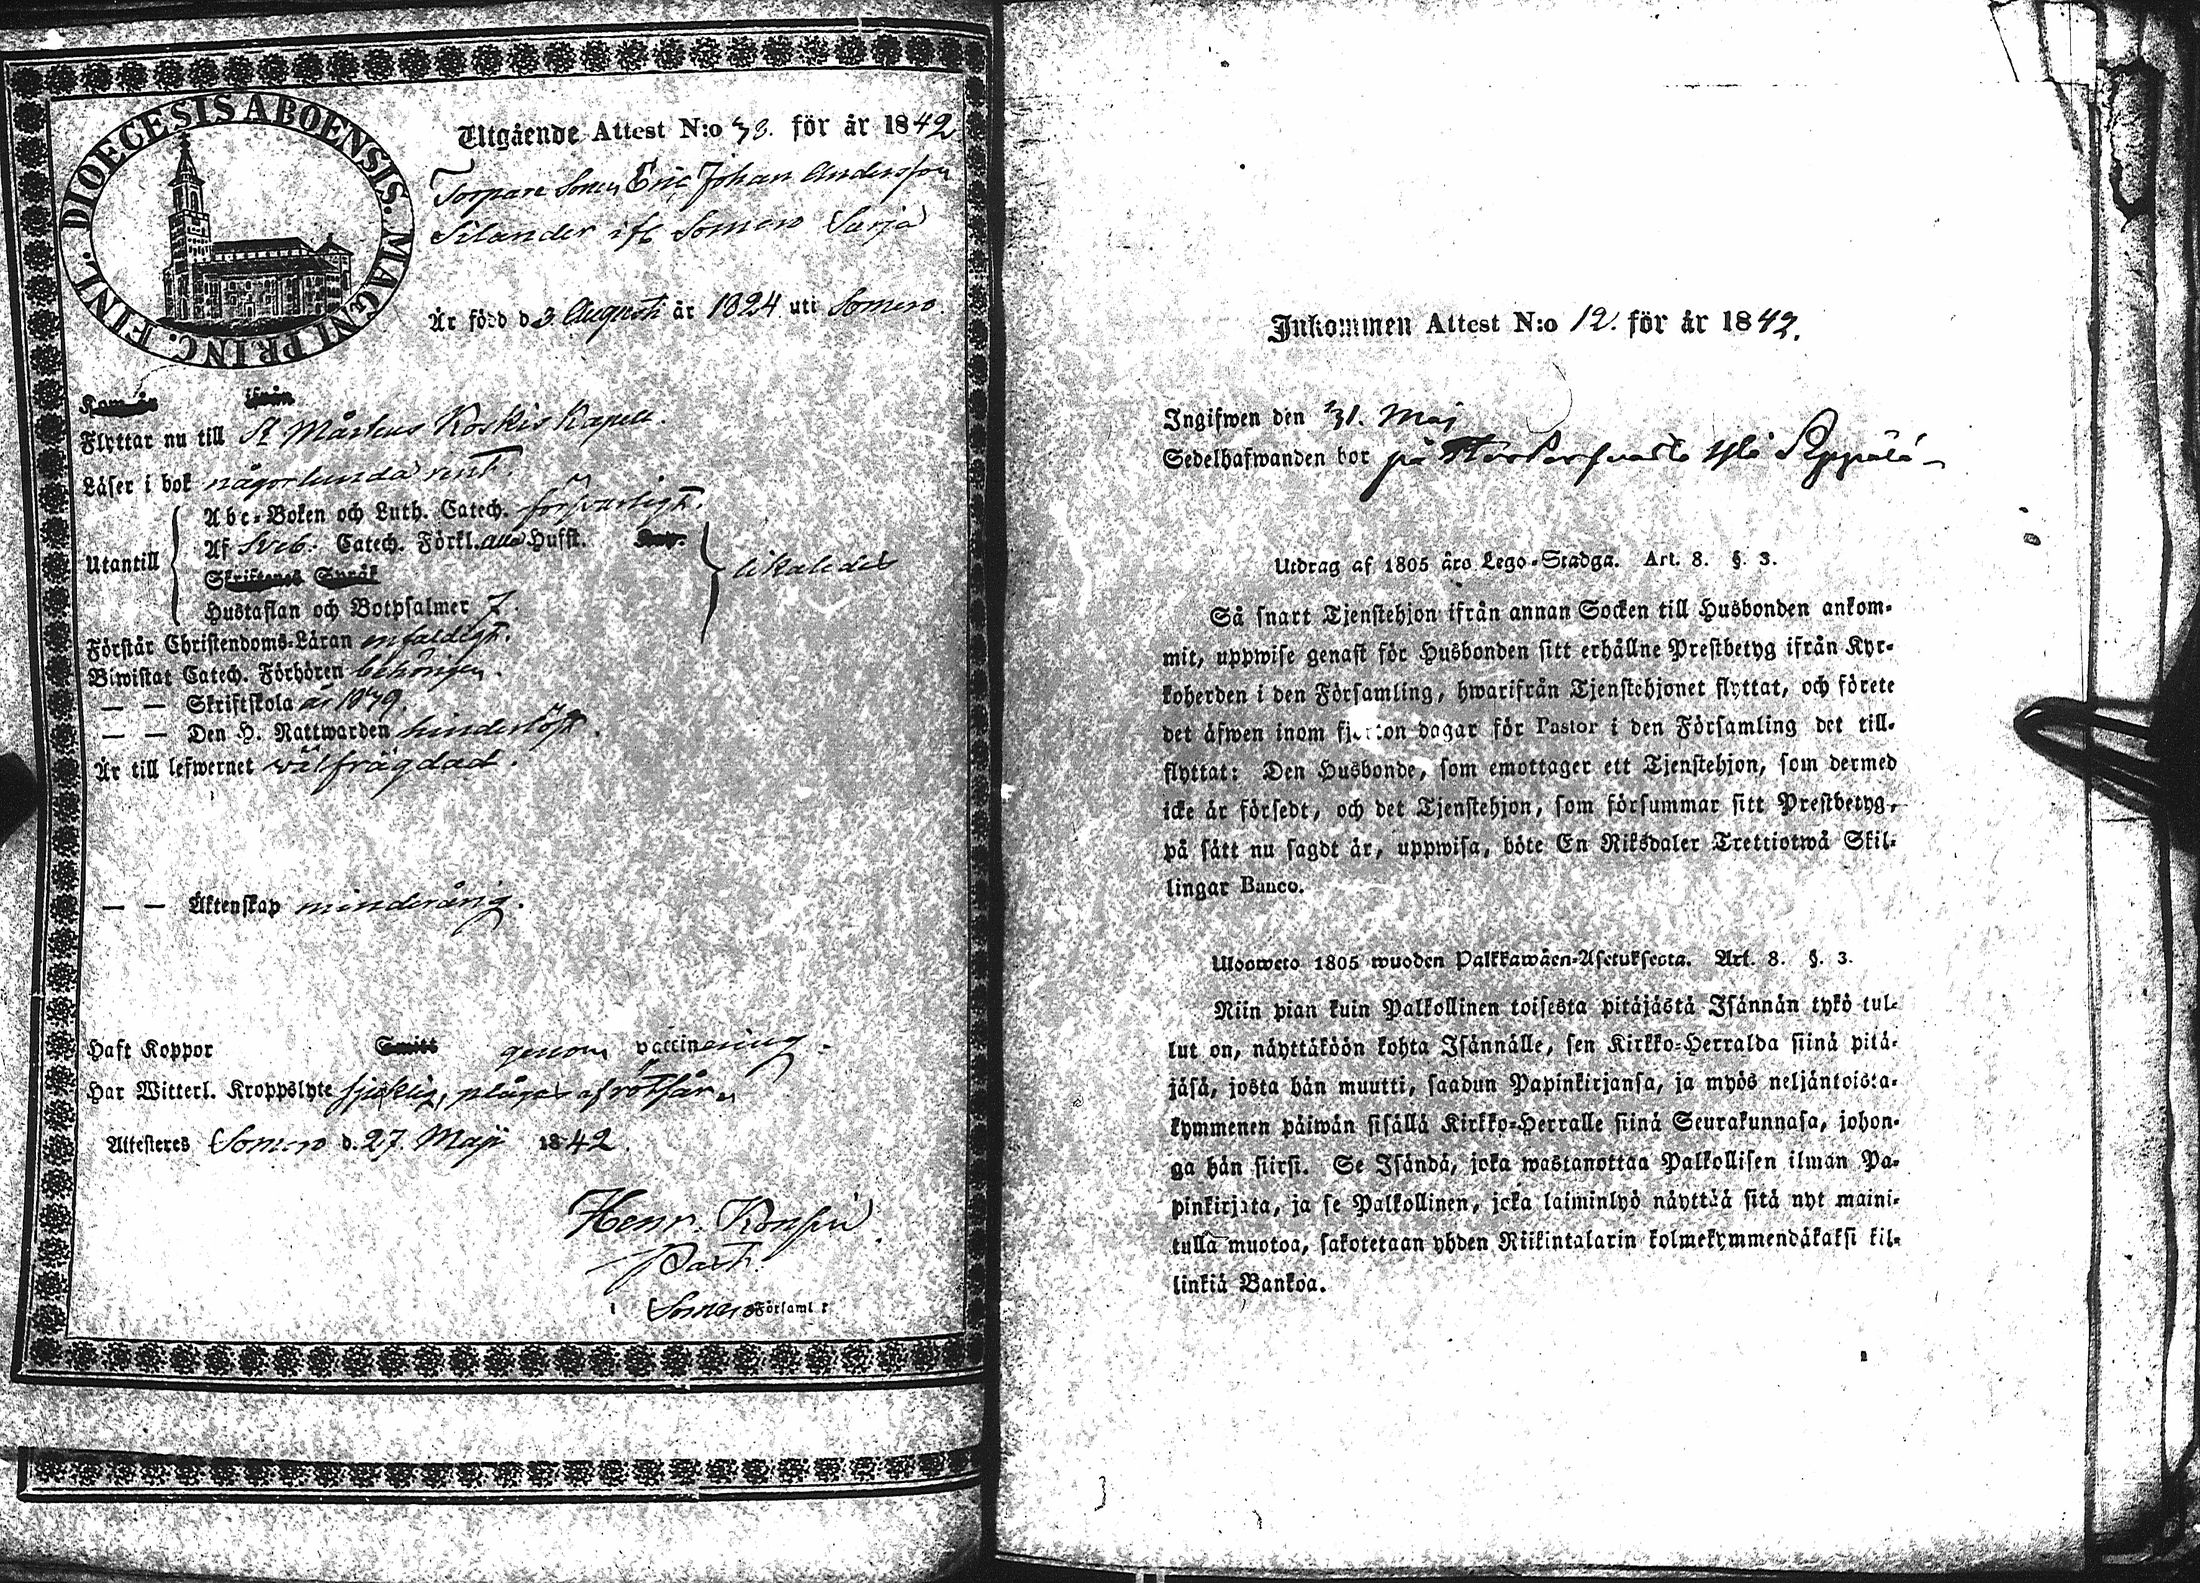 DIOECESIS ABOENSIS. MAGNI PRINC. FINL.
Utgående Attest N:o 38. för år 1842
Torpare Sonen Eric Johan Andersson
Silander ifr. Somero Sarja
Är född d 3 Augusti år 1824 uti Somero.
Kom år ifrån
Flyttar nu till St Mårtens Koskis Kapell.
Läser i bok någorlunda rent.
Utantill
Abc-Boken och Luth. Catech. försvarligt.
Af Sveb. Catech. Förkl. alla Hufst.
Skriftenes Språk
likaledes
Hustaflan och Botpsalmer 7.
Förstår Christendoms-Läran enfaldigt.
Biwistat Catech. Förhören behörigen.
— — Skriftskola år 1839.
— — Den H. Nattwarden hinderlöst.
Är till lefwernet välfrägdad.
— — Äktenskap minderårig.
Haft Koppor Smitt genom vaccinering.
Har Witterl. Kroppslyte sjuklig, plågas af rötsår.
Attesteres Somero d. 27. Maji 1842.
Henr.
Past.
i Somero Församl:r
Inkommen Attest N:o 12. för år 1842.
Ingifwen den 31. Maj
Sedelhafwanden bor på
Utdrag af 1805 års Lego-Stadga. Art. 8. §. 3.
Så snart Tjenstehjon ifrån annan Socken till Husbonden ankom-
mit, uppwise genast för Husbonden sitt erhållne Prestbetyg ifrån Kyr-
koherden i den Församling, hwarifrån Tjenstehjonet flyttat, och förete
det äfwen inom fjorton dagar för Pastor i den Församling det till-
flyttat: Den Husbonde, som emottager ett Tjenstehjon, som dermed
icke är försedt, och det Tjenstehjon, som försummar sitt Prestbetyg,
på sätt nu sagdt är, uppwisa, böte En Riksdaler Trettiotwå Skil-
lingar Banco.
Ulosweto 1805 wuoden Palkkawäen-Asetuksesta. Art. 8. §. 3.
Niin pian kuin Palkollinen toisesta pitäjästä Isännän tykö tul-
lut on, näyttäköön kohta Isännälle, sen Kirkko-Herralda siinä pitä-
jäsä, josta hän muutti, saadun Papinkirjansa, ja myös neljäntoista-
kymmenen päiwän sisällä Kirkko-Herralle siinä Seurakunnasa, johon-
ga hän siirsi. Se Isändä, joka wastanottaa Palkollisen ilman Pa-
pinkirjata, ja se Palkollinen, joka laiminlyö näyttää sitä nyt maini-
tulla muotoa, sakotetaan yhden Riikintalarin kolmekymmendäkaksi kil-
linkiä Bankoa.